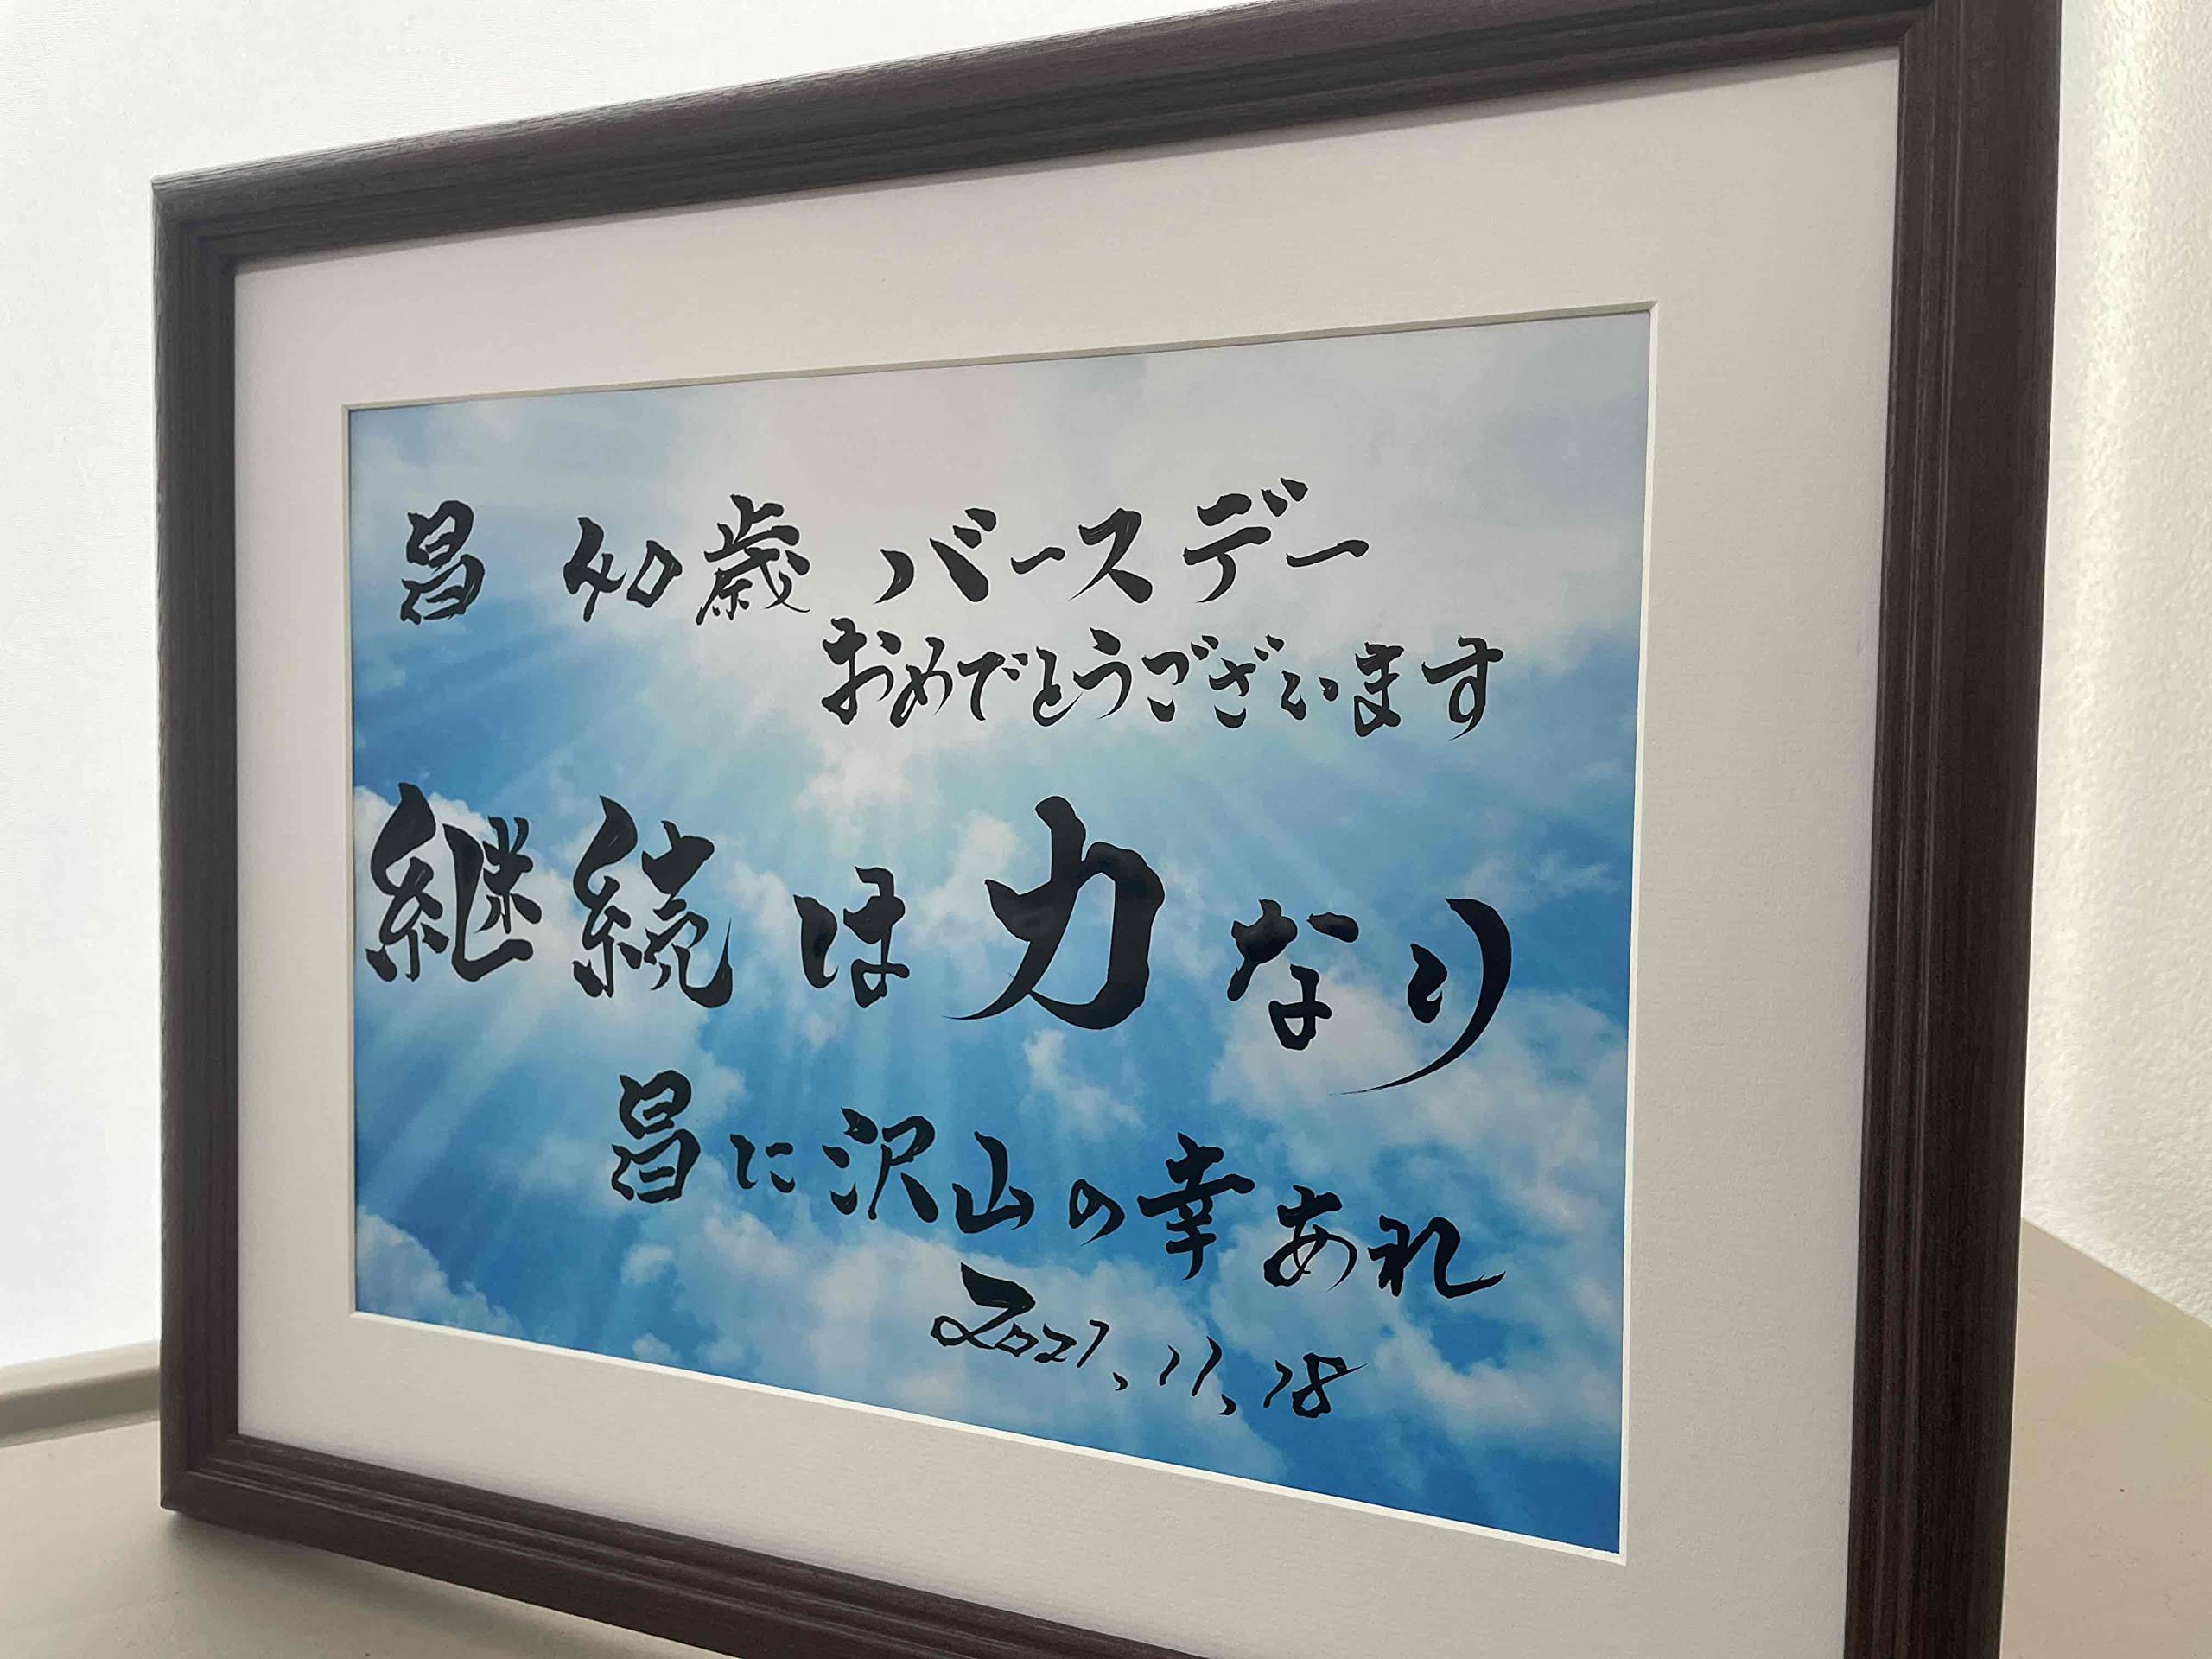 昌 40歳 バースデー
おめでとうございます
継続は力なり
昌に沢山の幸あれ
2021.11.18